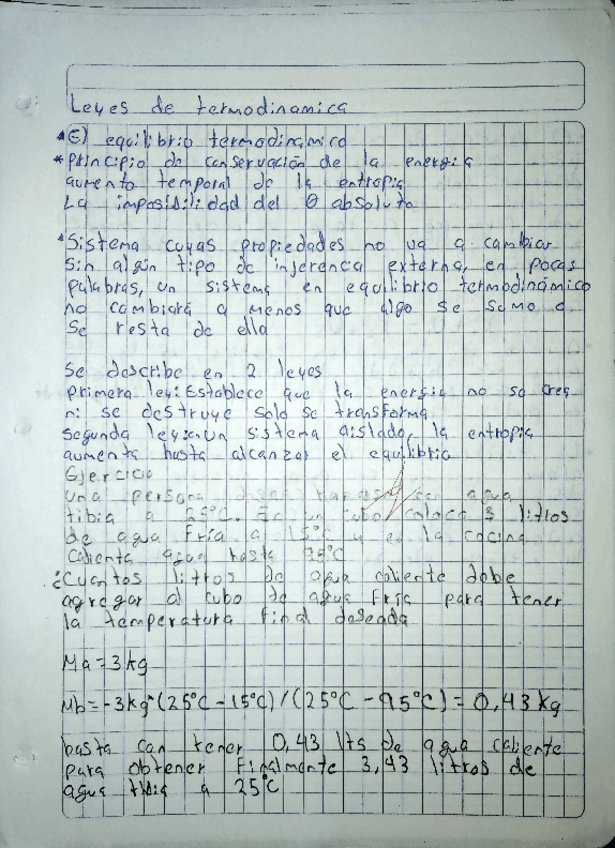 Leyes de termodinamica
*El equilibrio termodinamico
*Principio de conservación de la energia
aumento temporal de la entropia
La imposibilidad del 0 absoluto
*Sistema cuyas propiedades no va a cambiar
sin algún tipo de injerenca externa, en pocas
palabras, un sistema en equilibrio termodinámico
no cambiará a menos que algo se sume o
se resta de ella
Se describe en 2 leyes
primera ley: Establece que la energia no se crea
ni se destruye solo se transforma
segunda ley: un sistema aislado, la entropia
aumenta hasta alcanzar el equilibrio
Ejercicio
una persona desea con agua
tibia a 25°C. En un cubo coloca 3 litros
de agua Fria a 15°C y en la cocina
calienta agua hasta 95°C
¿Cuantos litros de agua caliente debe
agregar al cubo de agua Fria para tener
la temperatura final deseada
Ma = 3 kg
Mb = -3kg*(25°C - 15°C)/(25°C - 95°C) = 0,43 kg
basta con tener 0,43 lts de agua caliente
para obtener Finalmente 3,43 litros de
agua tibia a 25°C